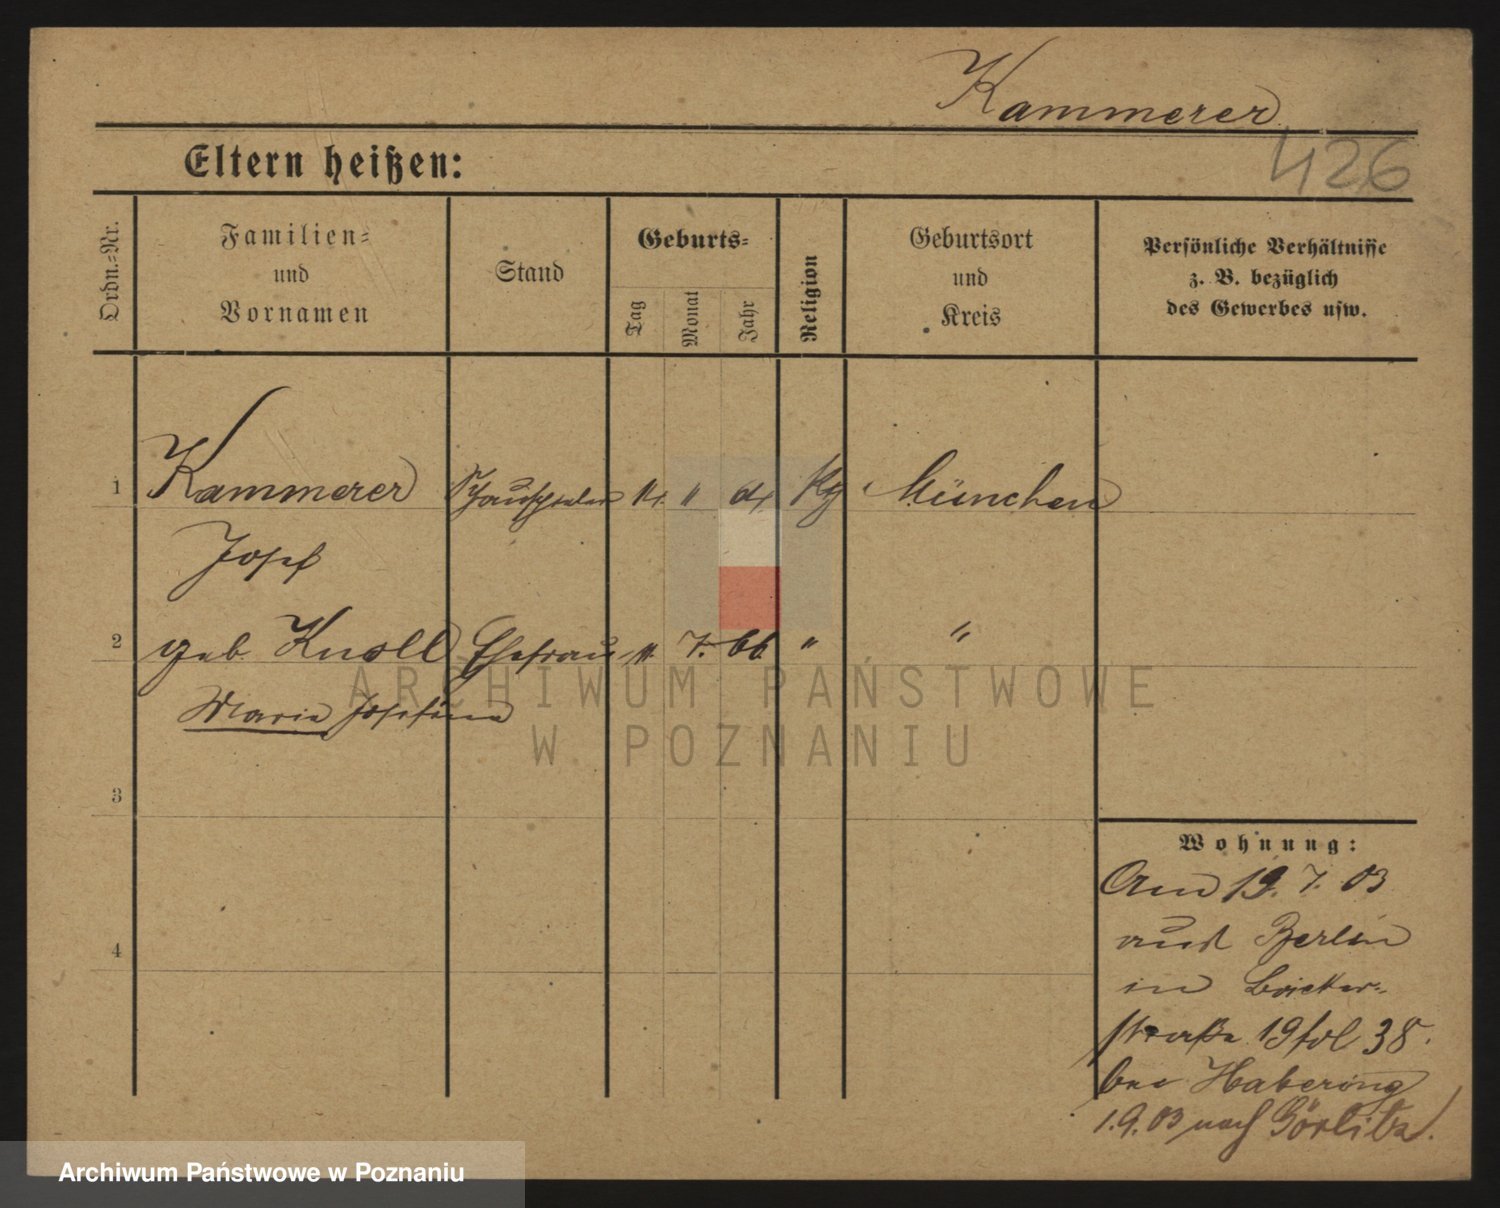 Kammerer
426
Eltern heißen:
Ordn.=Nr.
Familien=
und
Vornamen
Stand
Geburts=
Tag
Monat
Jahr
Religion
Geburtsort
und
Kreis
Persönliche Verhältnisse
z. B. bezüglich
des Gewerbes usw.
1 Kammerer Schauspieler " München
Josef
2 geb. Knoll Ehefrau 7. 66. " "
Marie Josefine
3
4
Wohnung:
Am 19. 7. 03
aus Berlin
in
straße 19 fol 38.
bei Habering
1.9.03 nach Görlitz.
ARCHIWUM PAŃSTWOWE
W POZNANIU
Archiwum Państwowe w Poznaniu